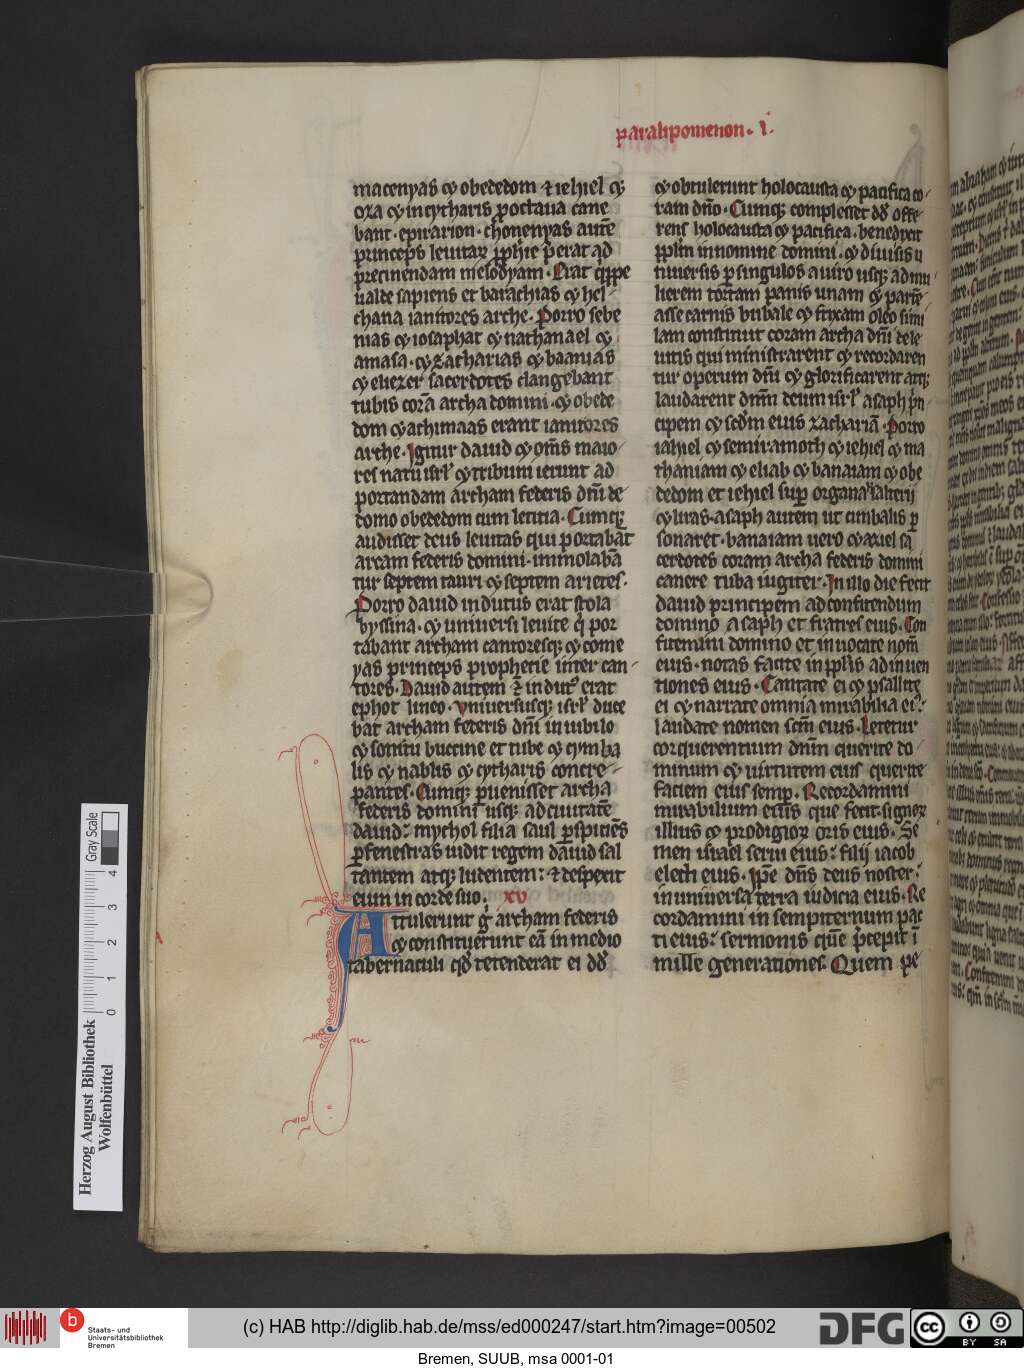 paralipomenon. I.
macenyas & obededom & iehiel &
oza & in cytharis p octaua cane
bant. epirarion. chonenyas autē
princeps leuitaꝝ ꝓphīe p̄erat ad
precinendam melodyam. Erat q̄ppe
ualde sapiens et barachias & hel-
chana ianitores arche. Porro sebe
nias & iosaphat & nathanael &
amasa. & zacharias & baanias
& eliezer sacerdotes clangebant
tubis corā archa domini. & obede
dom & achimaas erant ianitores
arche. Igitur dauid & om̄s maio-
res natu isrl̄ & tribuni ierunt ad
portandam archam federis dn̄i de
domo obededom cum letitia. Cumqꝫ
audisset deus leuitas qui portabāt
arcam federis domini. immolabā
tur septem tauri & septem arietes.
Porro dauid indutus erat stola
byssina. & uniuersi leuite q̄ por
tabant archam cantoresqꝫ & come
yas princeps prophetie inter can-
tores. Dauid autem & indut᷒ erat
ephot lineo. Vniuersusqꝫ isrl̄ duce
bat archam federis dn̄i in iubilo
& sonitu buccine et tube & cymba
lis & nablis & cytharis concre-
pantes. Cumqꝫ puenisset archa
federis domini usqꝫ ad ciuitatē
dauid: mychol filia saul pspiciēs
p fenestras uidit regem dauid sal
tantem atqꝫ ludentem: & despexit
eum in corde suo. xv
Attulerunt g̊ archam federis
& constituerunt eā in medio
tabernaculi qd̄ tetenderat ei dd̄
& obtulerunt holocausta & pacifica co-
ram dn̄o. Cumqꝫ complesset dd̄ offe-
rens holocausta & pacifica. benedixit
pplm̄ in nomine domini. & diuisis u
niuersis p singulos a uiro usqꝫ ad mu-
lierem tortam panis unam & partē-
asse carnis bubale & frixam oleo simi
lam constituit coram archa dn̄i de le
uitis qui ministrarent & recordaren
tur operum dn̄i & glorificarent atqꝫ
laudarent dnm̄ deum isrl̄ asaph p̄n-
cipem & scd̄m eius zachariā. Porro
iahiel & semiramoth & iehiel & ma
thaniam & eliab & banaiam & obe
dedom et iehiel sup organa psalterii
& liras. asaph autem ut cimbalis p
sonaret. banaiam uero & aziel sa
cerdotes coram archa federis domini
canere tuba iugiter. In illo die fecit
dauid principem ad confitendum
domino asaph et fratres eius. Con
fitemini domino et inuocate nom̄
eius. notas facite in ppl̄is adinuen
tiones eius. Cantate ei & psallite
ei & narrate omnia mirabilia ei᷒.
laudate nomen scm̄ eius. Letetur
cor querentium dnm̄ querite do-
minum & uirtutem eius querite
faciem eius semp. Recordamini
mirabilium eius que fecit. signoꝝ
illius & prodigioꝝ oris eius. Se
men israel serui eius: filij iacob
electi eius. Ipe dn̄s deus noster.
in uniuersa terra iudicia eius. Re
cordamini in sempiternum pac
ti eius: sermonis quē p̄cepit ī
mille generationes. Quem pe
Herzog August Bibliothek
Wolfenbüttel
0 1 2 3 4
Gray Scale
b
Staats- und
Universitätsbibliothek
Bremen
(c) HAB http://diglib.hab.de/mss/ed000247/start.htm?image=00502
DFG
cc
BY SA
Bremen, SUUB, msa 0001-01